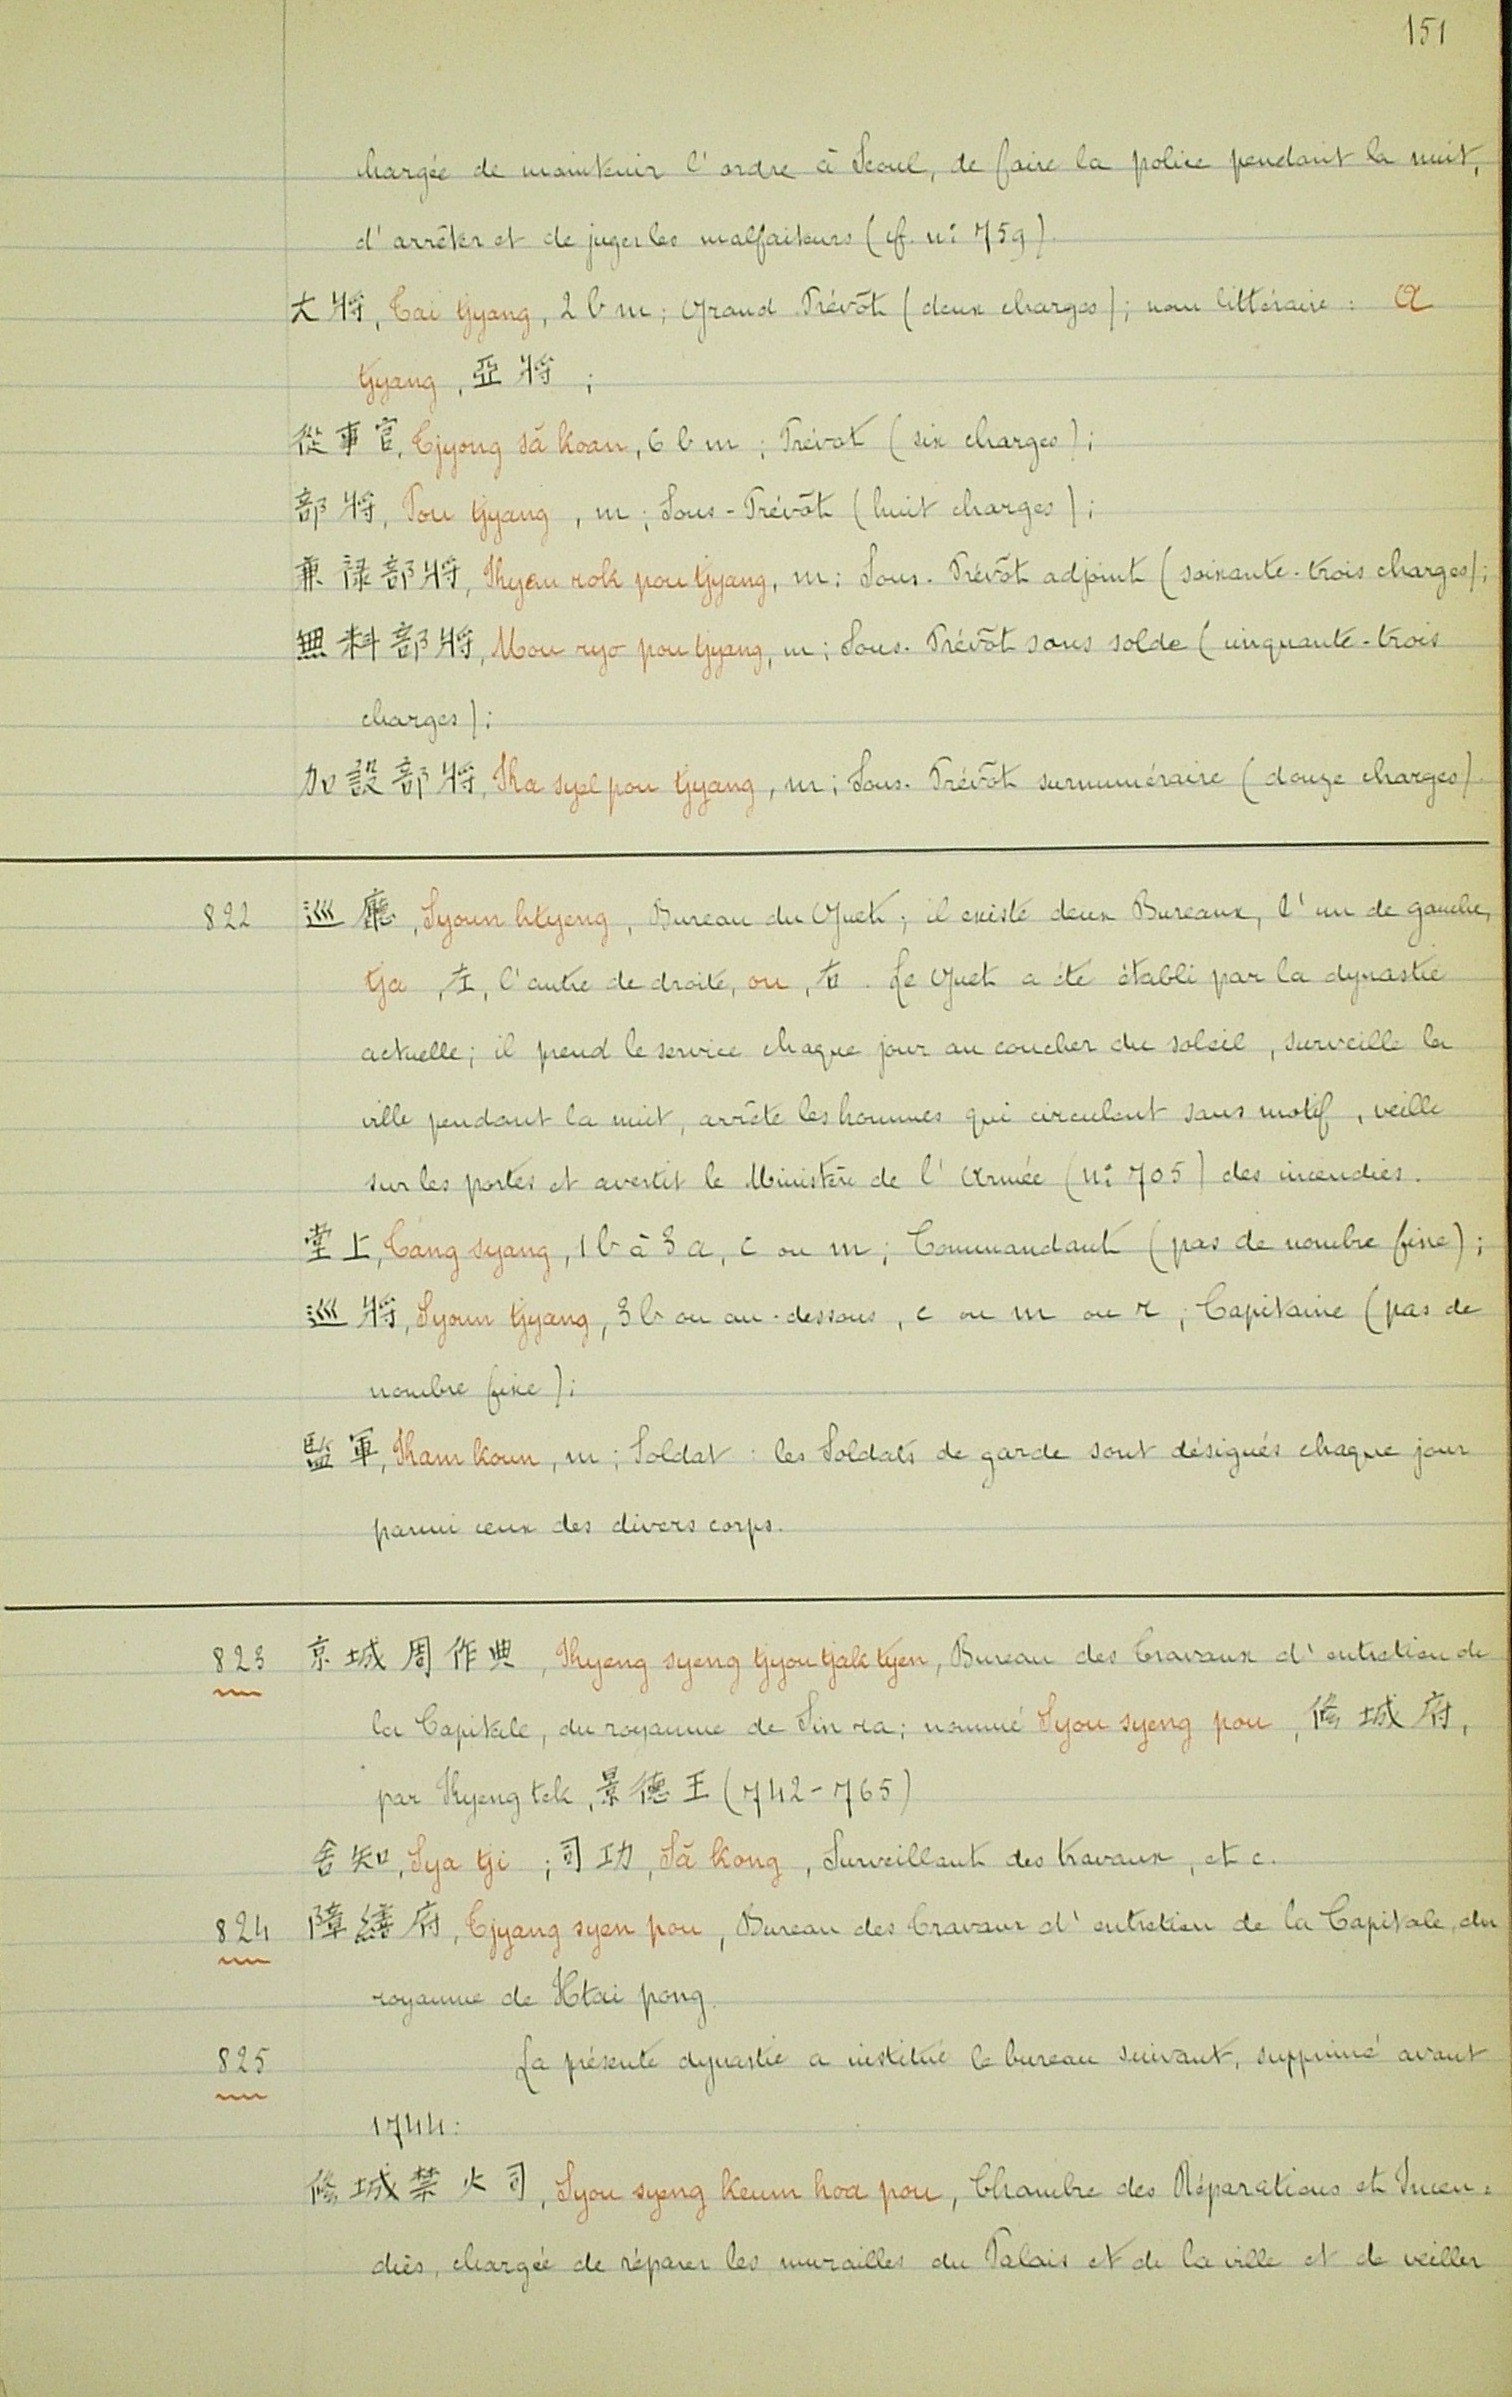 151
chargée de maintenir l'ordre à Seoul, de faire la police pendant la nuit,
d'arrêter et de juger les malfaiteurs (cf. n: 759).
大將, Tai tjyang, 2 b m; Grand Prévôt (deux charges); nom littéraire : A
tjyang, 亞將 ;
從事官, Tjyong să koan, 6 b m ; Prévôt (six charges);
部將, Pou tjyang, m; Sous-Prévôt (huit charges);
兼祿部將, Kyem rok pou tjyang, m; Sous-Prévôt adjoint (soixante-trois charges);
無料部將, Mou ryo pou tjyang, m; Sous-Prévôt sans solde (cinquante-trois
charges);
加設部將, Ka syel pou tjyang, m; Sous-Prévôt surnuméraire (douze charges).
822 巡廳, Syoun htyeng, Bureau du Guet; il existe deux Bureaux, l'un de gauche,
tja, 左, l'autre de droite, ou, 右. Le Guet a été établi par la dynastie
actuelle; il prend le service chaque jour au coucher du soleil, surveille la
ville pendant la nuit, arrête les hommes qui circulent sans motif, veille
sur les portes et avertit le Ministère de l'Armée (n: 705) des incendies.
堂上, Tang syang, 1 b à 3 a, c ou m; Commandant (pas de nombre fixe);
巡將, Syoun tjyang, 3 b ou au-dessous, c ou m ou r; Capitaine (pas de
nombre fixe);
監軍, Kam koun, m; Soldat : les Soldats de garde sont désignés chaque jour
parmi ceux des divers corps.
823 京城周作典, Kyeng syeng tjyou tjak tyen, Bureau des Travaux d'entretien de
la Capitale, du royaume de Sin ra; nommé Syou syeng pou, 修城府,
par Kyeng tek, 景德王 (742-765)
舍知, Sya tji ; 司功, Să kong, Surveillant des travaux, etc.
824 障繕府, Tjyang syen pou, Bureau des Travaux d'entretien de la Capitale, du
royaume de Htai pong.
825 La présente dynastie a institué le bureau suivant, supprimé avant
1744:
修城禁火司, Syou syeng keum hoa pou, Chambre des Réparations et Incen-
dies, chargée de réparer les murailles du Palais et de la ville et de veiller